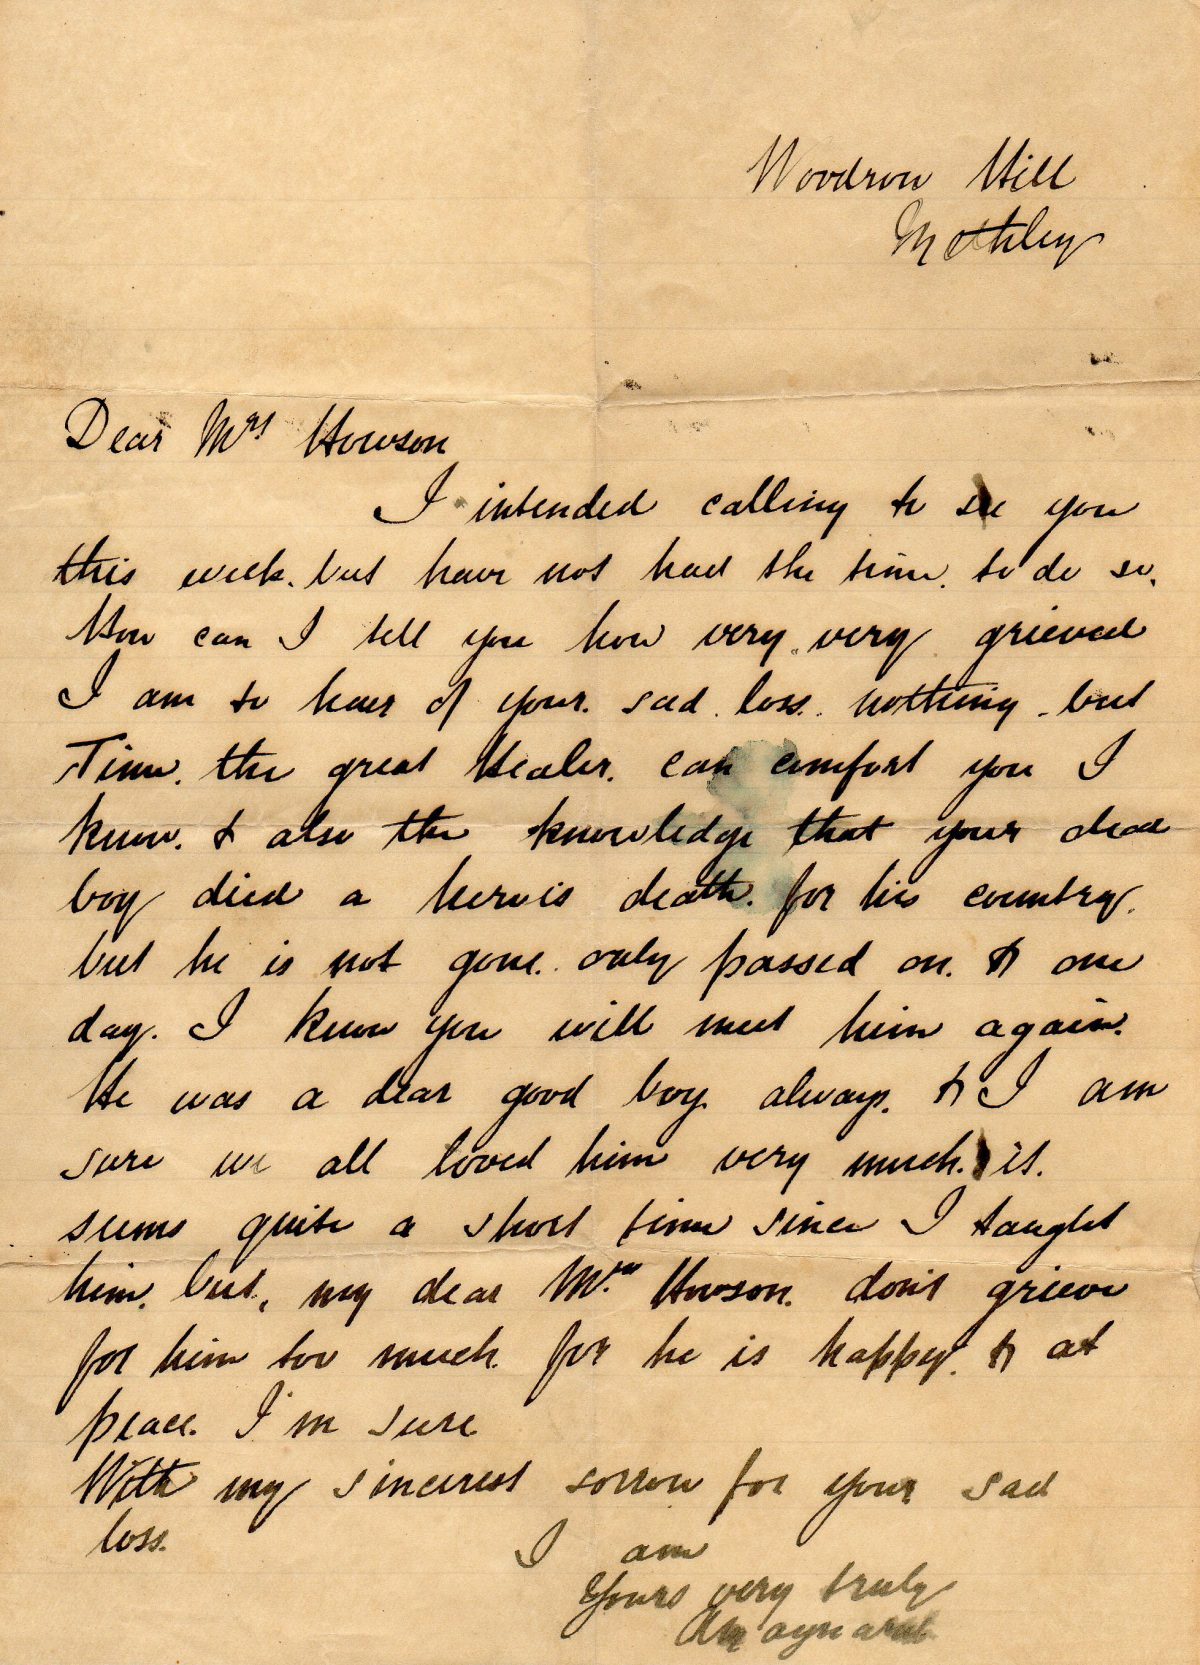 Woodrow Hill
Methley
Dear Mrs Howson
I intended calling to see you
this week. but have not had the time. to do so.
How can I tell you how very, very grieved
I am to hear of your. sad. loss. nothing. but
Time. the great Healer. can comfort you I
know. & also the knowledge that your dead
boy died a herois death. for his country.
but he is not gone. only passed on. & one
day. I know you will meet him again.
He was a dear good boy always. & I am
sure we all loved him very much. it.
seems quite a short time since I taught
him. but, my dear Mrs. Howson. don't grieve
for him too much. for he is happy. & at
peace. I'm sure.
With my sincerest sorrow for your sad
loss.
I am
Yours very truly